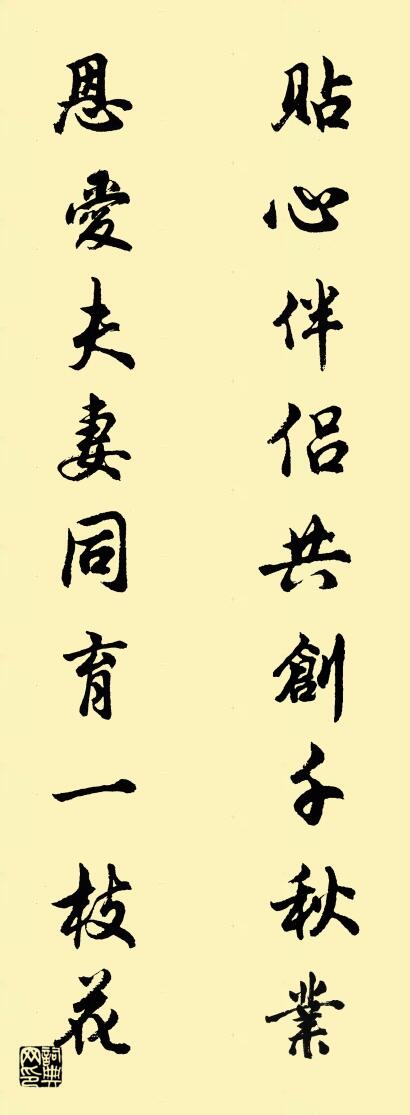 貼心伴侶共創千秋業
恩愛夫妻同育一枝花
詞典网印